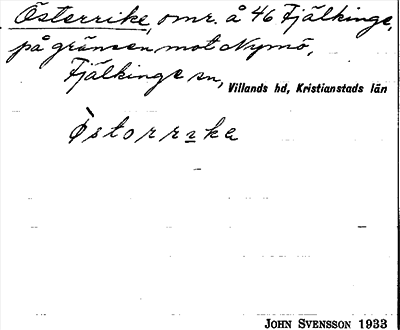 Österrike, omr. å 46 Fjälkinge,
på gränsen mot Nymö,
Fjälkinge sn, Villands hd, Kristianstads län
Östorrike
JOHN SVENSSON 1933